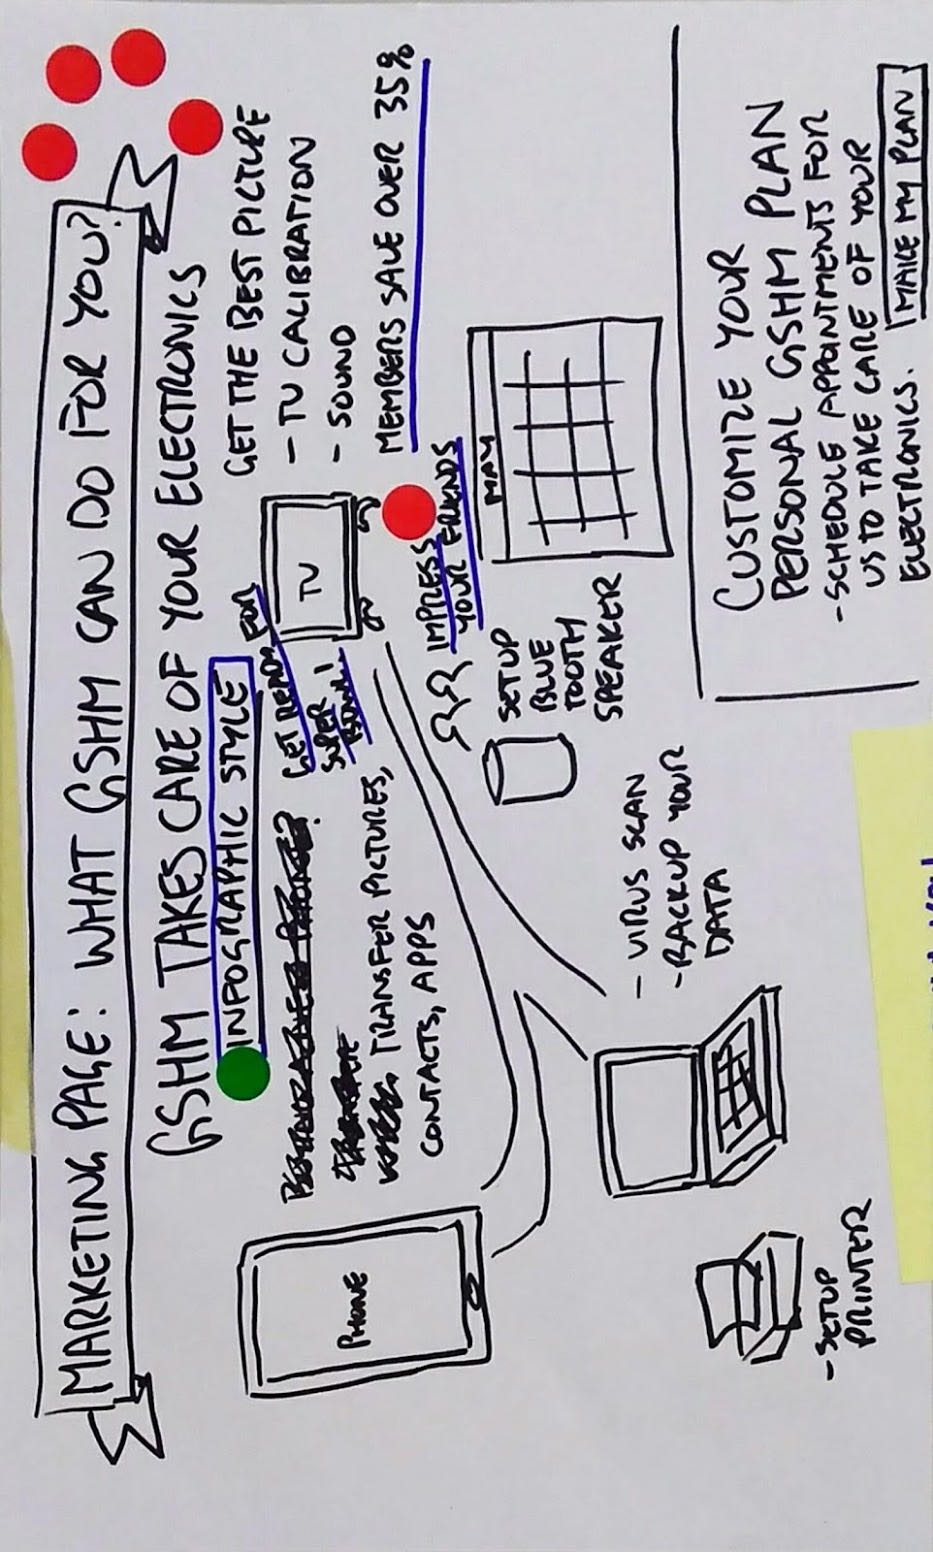 MARKETING PAGE: WHAT GSHM CAN DO FOR YOU?
GSHM TAKES CARE OF YOUR ELECTRONICS
INFOGRAPHIC STYLE
GET READY FOR
SUPER
BOWL!
TV
GET THE BEST PICTURE
- TV CALIBRATION
- SOUND
MEMBERS SALE OVER 35%
IMPRESS
YOUR FRIENDS
TRANSFER PICTURES,
CONTACTS, APPS
PHONE
SETUP
BLUE
TOOTH
SPEAKER
MAY
- VIRUS SCAN
- BACKUP YOUR
DATA
- SETUP
PRINTER
CUSTOMIZE YOUR
PERSONAL GSHM PLAN
- SCHEDULE APPOINTMENTS FOR
US TO TAKE CARE OF YOUR
ELECTRONICS.
MAKE MY PLAN